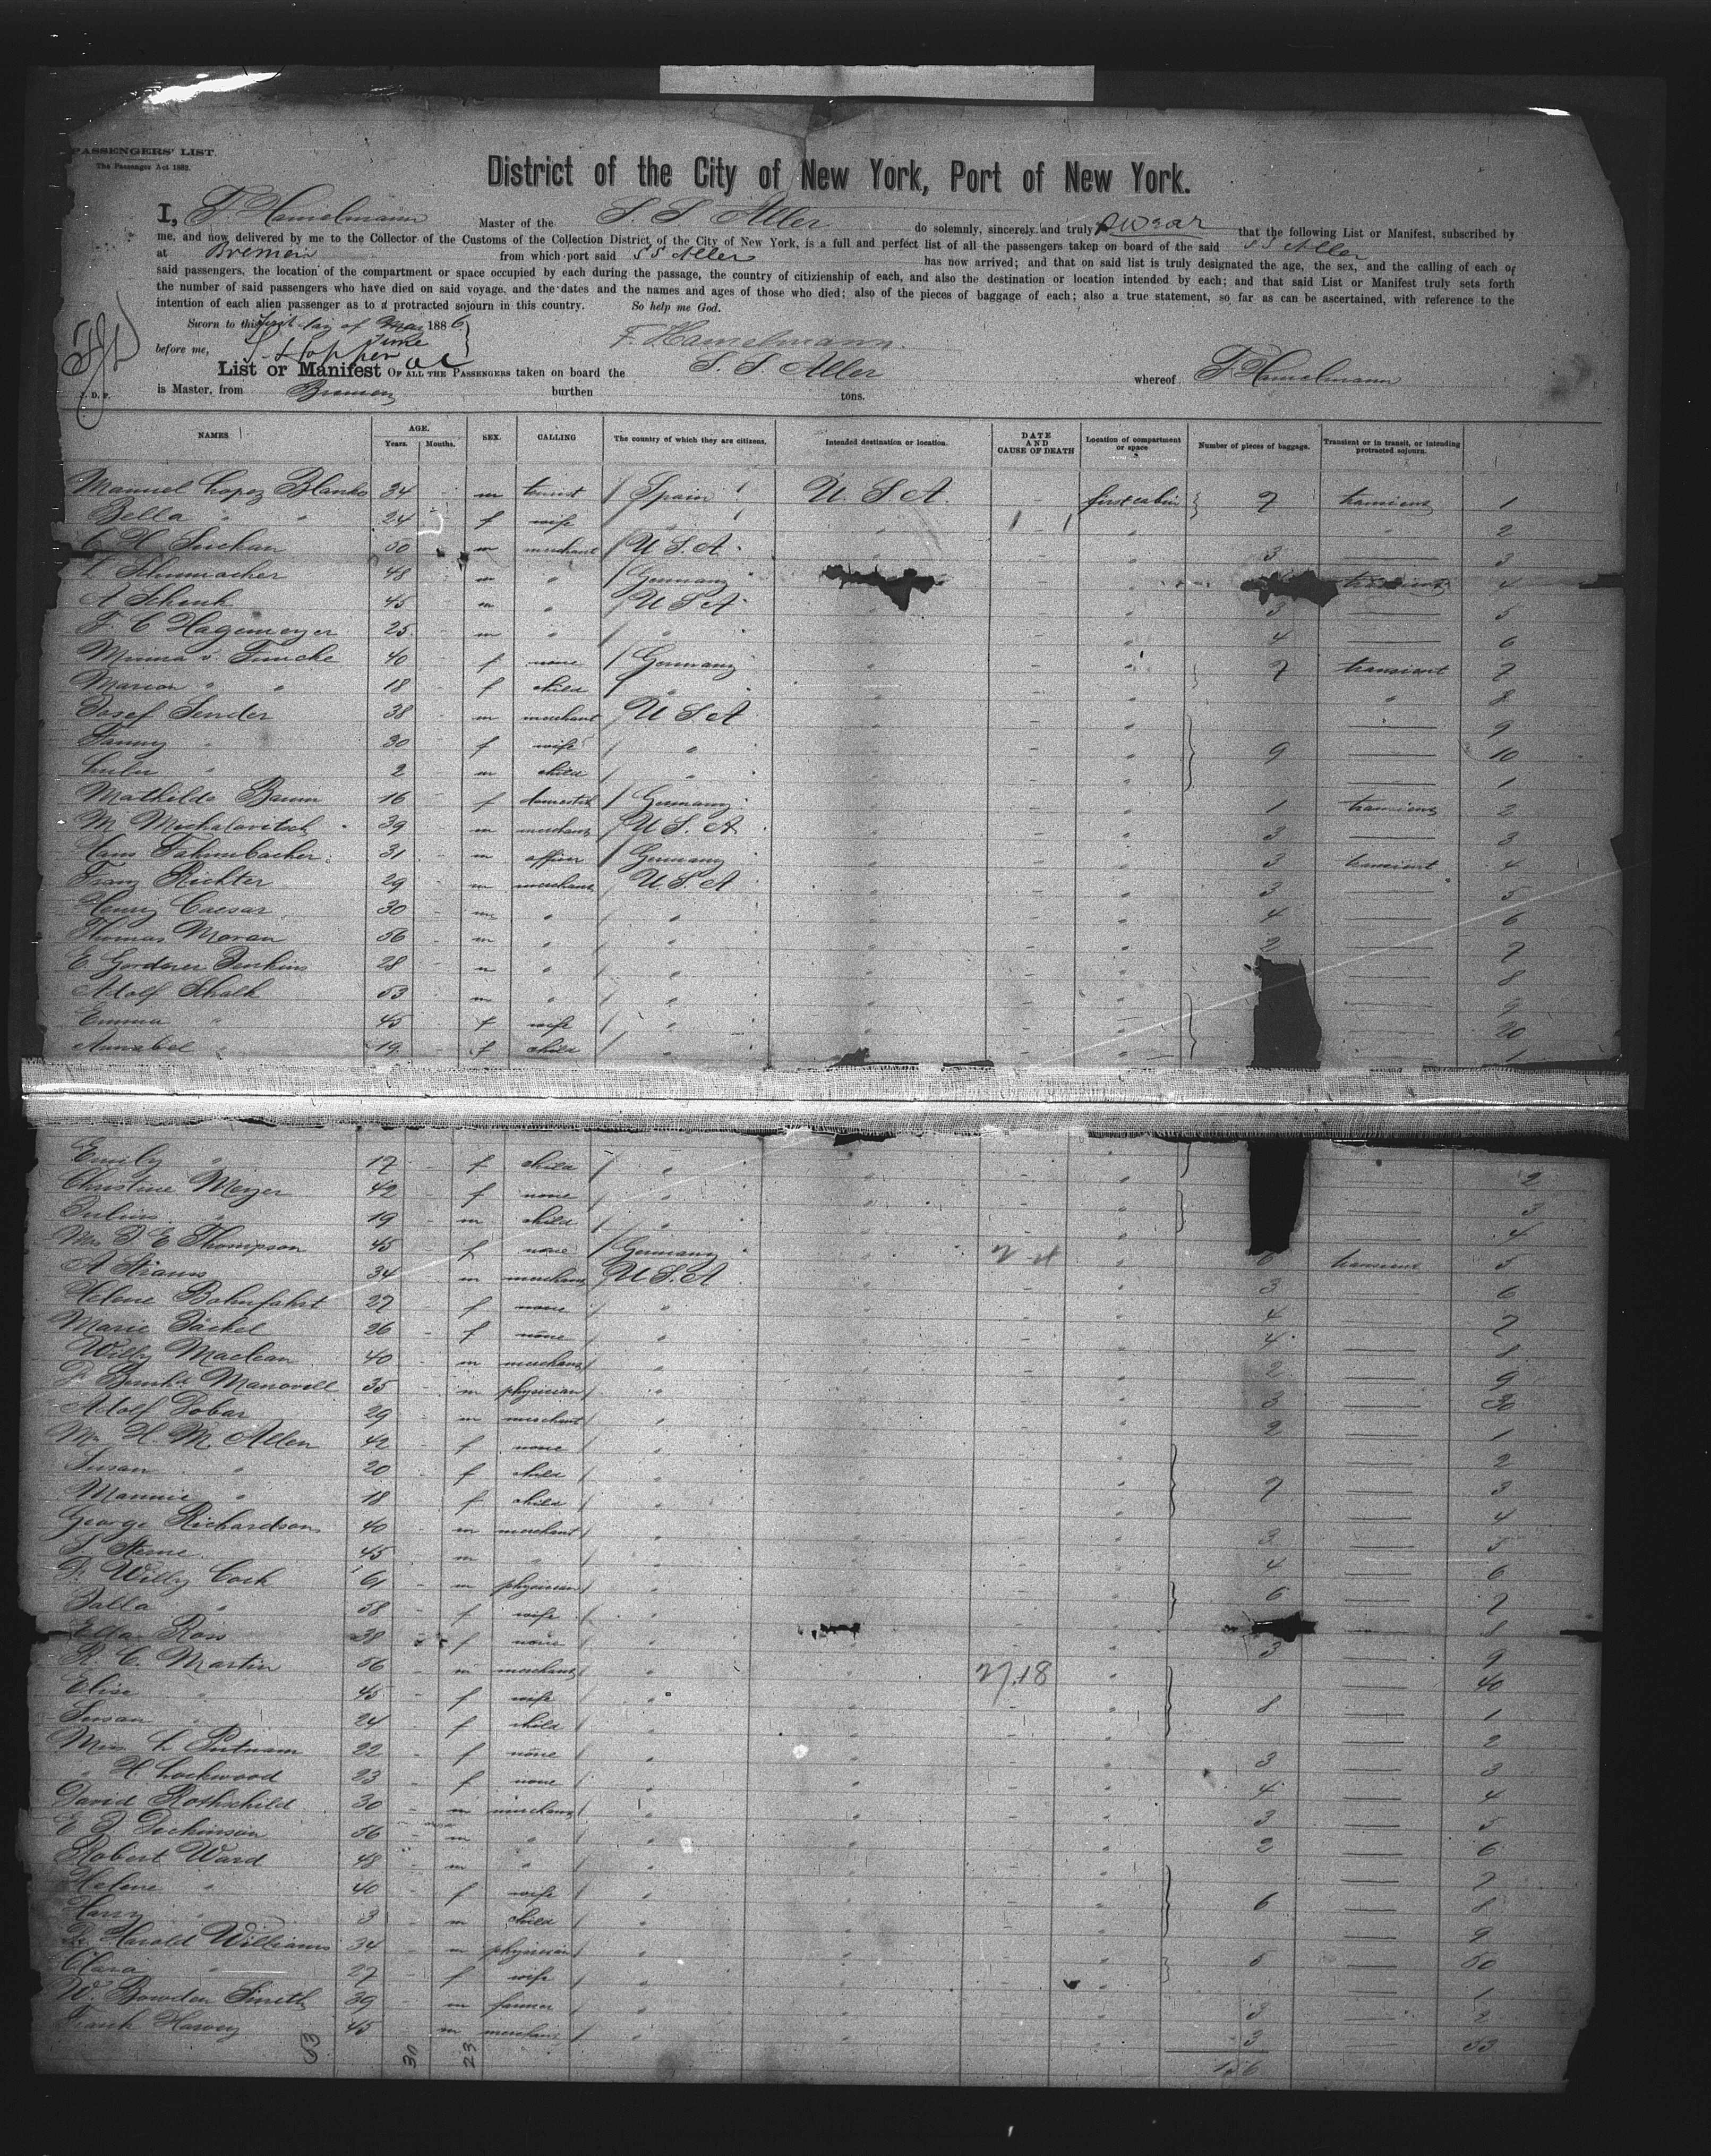 PASSENGERS' LIST.
The Passenger Act 1882.
District of the City of New York, Port of New York.
I, F. Hamelmann Master of the S. S. Aller do solemnly, sincerely and truly swear that the following List or Manifest, subscribed by
me, and now delivered by me to the Collector of the Customs of the Collection District of the City of New York, is a full and perfect list of all the passengers taken on board of the said S S Aller
at Bremen from which port said S S Aller has now arrived; and that on said list is truly designated the age, the sex, and the calling of each of
said passengers, the location of the compartment or space occupied by each during the passage, the country of citizienship of each, and also the destination or location intended by each; and that said List or Manifest truly sets forth
the number of said passengers who have died on said voyage, and the dates and the names and ages of those who died; also of the pieces of baggage of each; also a true statement, so far as can be ascertained, with reference to the
intention of each alien passenger as to a protracted sojourn in this country. So help me God.
Sworn to this first day of June 1886
before me, F. Hamelmann.
List or Manifest OF ALL THE PASSENGERS taken on board the S. S. Aller whereof F. Hamelmann
is Master, from Bremen burthen tons.
NAMES AGE. Years. Months. SEX. CALLING The country of which they are citizens. Intended destination or location. DATE AND CAUSE OF DEATH Location of compartment or space Number of pieces of baggage. Transient or in transit, or intending protracted sojourn.
Manuel Lopez Blanko 34 - m tourist Spain U. S A. - first cabin 7 transient 1
Bella " " 24 - f wife " " - " " 2
C H Suckau 50 m merchant U S. A. " - " 3 — 3
L Schumacher 48 m " Germany - " transient 4
A Schenk 45 m " U S A " - " 3 — 5
F. C Hagemeyer 25 m " " " - " 4 — 6
Minna v. Funcke 40 f none Germany " - " 7 transient 7
Marion " " 18 - f child " " - " " 8
Josef Sender 38 - m merchant U S A " - " — 9
Fanny " 30 - f wife " " - " 9 — 10
" 2 - m child " " - " — 1
Mathilde Baum 16 - f domestic Germany " - " 1 transient 2
M Mechalovitsch 39 - m merchant U S. A " - " 3 — 3
Hans Fahmbacher 31 - m officer Germany " - " 3 transient 4
Franz Richter 29 - m merchant U. S. A " - " 3 — 5
Henry Caesar 30 - m " " " - " 4 — 6
Thomas Moran 56 - m " " " - " 2 — 7
E. Gorderer Jenkins 28 - m " " " - " — 8
Adolf Schalk 53 - m " " " - " — 9
Emma " 45 - f wife " " - " — 20
Annabel " 19 - f child " " - " — 1
Emily " 17 - f child " " - " — 2
Christine Meyer 42 - f none " " - " — 3
Julius " 19 - m child " " - " — 4
Mrs J E Thompson 45 f none Germany " " 6 transient 5
A Strauss 34 - m merchant U S. A " - " 3 — 6
Helene Bohnfahrt 27 - f none " " - " 4 — 7
Marie Jäckel 26 - f none " " - " 4 — 8
Willy Maclean 40 - m merchant " " - " 2 — 9
Dr Bernhd Manovill 35 - m physician " " - " 3 — 30
Adolf Dobar 29 - m merchant " " - " 2 — 1
Mrs H. M. Allen 42 - f none " " - " — 2
Susan " 20 - f child " " - " 7 — 3
Mannie " 18 - f child " " - " — 4
George Richardson 40 - m merchant " " - " 3 — 5
S. Sterne 45 - m " " " - " 4 — 6
Dr Willy Cock 61 - m physician " " - " 6 — 7
Jalla " 58 - f wife " - " — 8
Ella Ross 38 f none " " - " 3 — 9
R. C. Martin 56 - m merchant " " " — 40
Elise " 45 - f wife " " - " 8 — 1
Susan " 24 - f child " " - " — 2
Miss L Putnam 22 - f none " " - " 3 — 3
" H Lockwood 23 - f none " " - " 4 — 4
David Rothschild 30 - m merchant " " - " 3 — 5
E J. Dockinson 56 - m " " " - " 2 — 6
Robert Ward 48 - m " " " - " — 7
Helene " 40 - f wife " " - " 6 — 8
Harry " 3 - m child " " - " — 9
Dr. Harold Williams 34 - m physician " " - " 5 — 50
Clara " 27 - f wife " " - " — 1
W. Bowden Smith 39 - m farmer " " - " 3 — 2
Frank Harvey 45 - m merchant " " - " 3 — 53
53 30 23 156